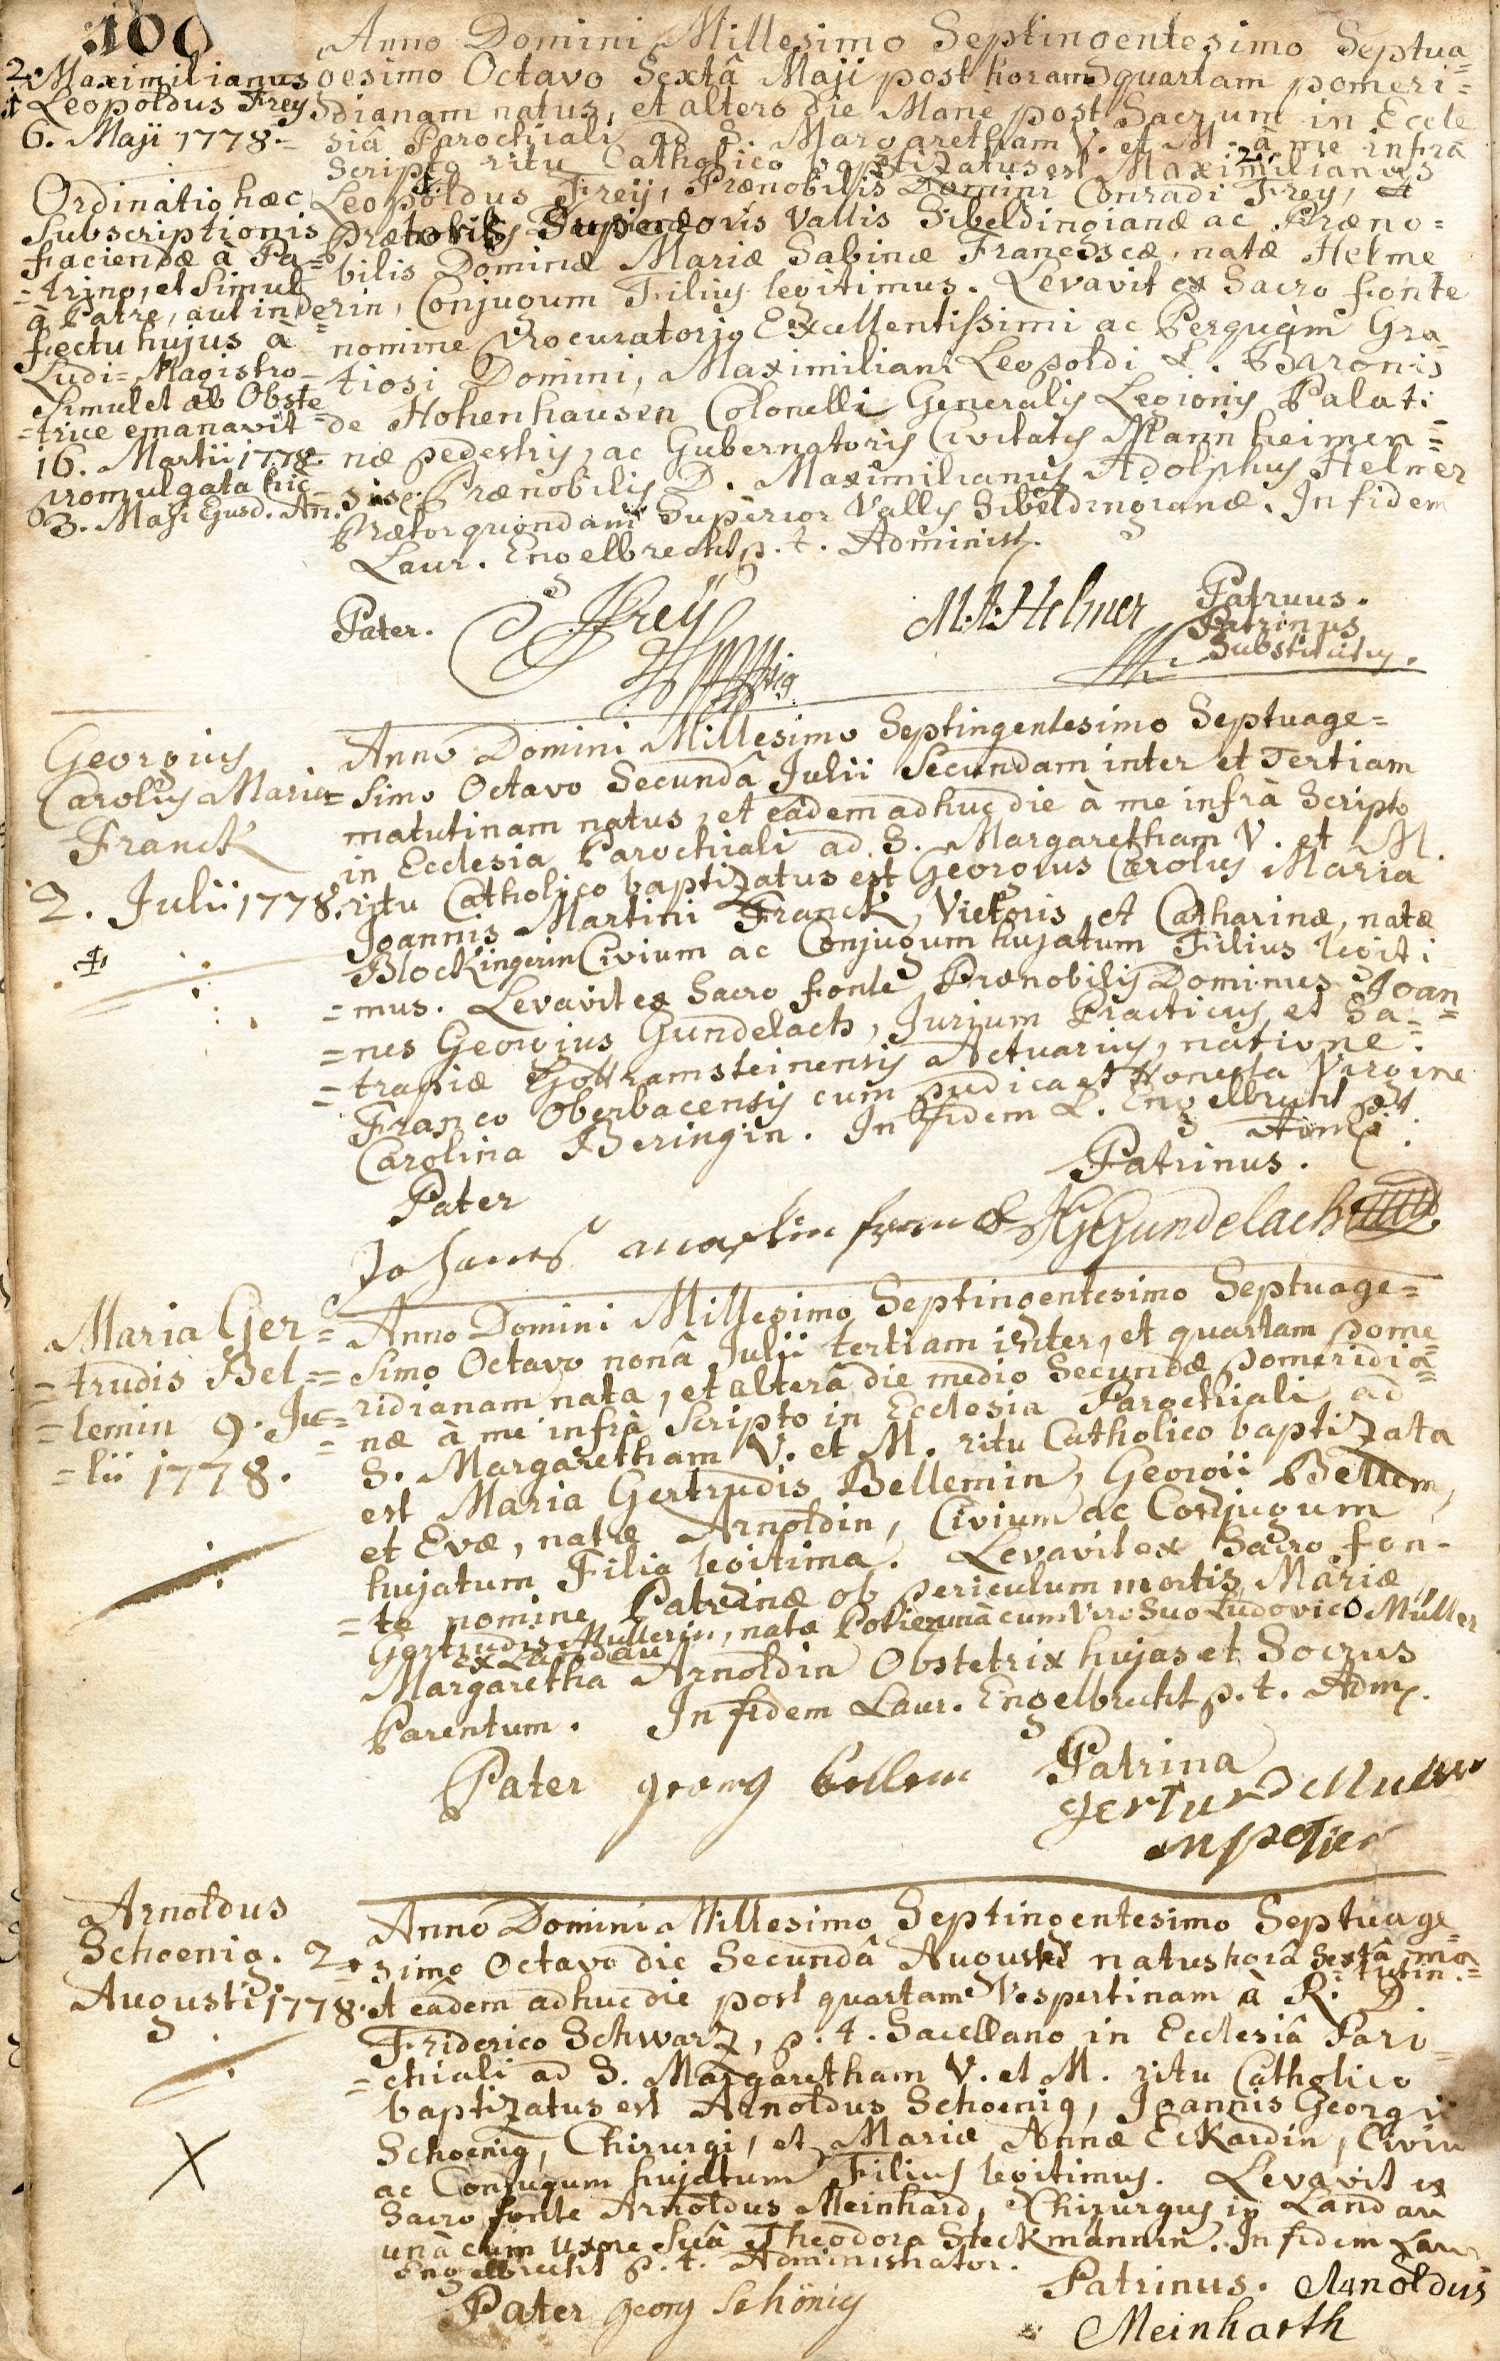 100
2. Maximilianus
1 Leopoldus Frey
6. Maji 1778.
Ordinatio hæc
Subscriptionis
faciendæ à Pa=
=trino, et simul
à Patre, aut in de=
fectu hujus à
Ludi=Magistro
simul et ab Obste
=trice emanavit
16. Martii 1778
promulgata hic
3. Maji Ejusd. An.
Anno Domini Millesimo Septingentesimo Septua=
gesimo Octavo Sextâ Maji post horam quartam pomeri=
dianam natus, et altero die Mane post Sacrum in Eccle
siâ Parochiali ad S. Margaretham V. et M. à me infrà
Scripto ritu Catholico baptizatus est Maximilianus 2.
Leopoldus 1. Freÿ, Prænobilis Domini Conradi Frey,
Prætoris Superioris Vallis Sibeldingianæ ac Præno=
bilis Dominæ Mariæ Sabinæ Franciscæ, natæ Helme
rin, Conjugum Filius legitimus. Levavit ex Sacro fonte
nomine Procuratorio Excellentissimi ac Perquàm Gra=
tiosi Domini, Maximiliani Leopoldi L. Baronis
de Hohenhausen Colonelli Generalis Legionis Palati
næ pedestris, ac Gubernatoris Civitatis Mannheimen=
sis Prænobilis D. Maximilianus Adolphus Helmer
Prætor quondam Superior Vallis Sibeldingianæ. In fidem
Laur. Engelbrecht p. t. Administ.
Pater. Freÿ M. A. Helmer Patruus.
Patrinus
Substitutus.
Georgius
Carolus Maria
Franck
2. Julii 1778.
Anno Domini Millesimo Septingentesimo Septuage=
simo Octavo Secundâ Julii Secundam inter et Tertiam
matutinam natus, et eâdem adhuc die à me infrà Scripto
in Ecclesia Parochiali ad S. Margaretham V. et M.
ritu Catholico baptizatus est Georgius Carolus Maria
Joannis Martini Franck, Vietoris, et Catharinæ, natæ
Blockingerin Civium ac Conjugum hujatum Filius legiti
=mus. Levavit ex Sacro fonte Prænobilis Dominus Joan=
=nes Georgius Gundelach, Jurium Practicus et Sa=
=trapiæ Godramsteinensis Actuarius, natione
Franco Oberbacensis cum pudica et Honesta Virgine
Carolina Beringin. In fidem L. Engelbrecht p. t.
Adm.
Pater Patrinus.
Johannes martin franck JGGundelach
Maria Ger=
=trudis Bel=
=lemin 9. Ju=
=lii 1778.
Anno Domini Millesimo Septingentesimo Septuage=
simo Octavo nonâ Julii tertiam inter, et quartam pome
ridianam nata, et alterâ die medio Secundæ pomeridia=
næ à me infrà Scripto in Ecclesia Parochiali ad
S. Margaretham V. et M. ritu Catholico baptizata
est Maria Gertrudis Bellemin, Georgii Bellem,
et Evæ, natæ Arnoldin, Civium ac Conjugum
hujatum Filia legitima. Levavit ex Sacro fon-
=te nomine Patrinæ ob periculum mortis Mariæ
Gertrudis Müllerin, natæ Potier unà cum Viro Suo Ludovico Müller
ex Landau
Margaretha Arnoldin Obstetrix hujas et Socrus
Parentum. In fidem Laur. Engelbrecht p. t. Adm.
Pater georg bellem Patrina
Arnoldus
Schoenig. 2
Augusti 1778.
Anno Domini Millesimo Septingentesimo Septuage=
simo Octavo die Secundâ Augusti natus horâ Sextâ ma
tutin.
et eâdem adhuc die post quartam Vespertinam à R. D.
Friderico Schwarz, p. t. Sacellano in Ecclesiâ Paro=
=chiali ad S. Margaretham V. et M. ritu Catholico
baptizatus est Arnoldus Schoenig, Joannis Georgii
Schoenig, Chirurgi, et Mariæ Annæ Eckardin, Civiu
ac Conjugum hujatum Filius legitimus. Levavit ex
Sacro fonte Arnoldus Meinhard, Chirurgus in Landau
unà cum uxore suâ Theodora Steckmännin. In fidem Laur.
Engelbrecht p. t. Administrator.
Pater georg Schönig Patrinus. Arnoldus
Meinharth